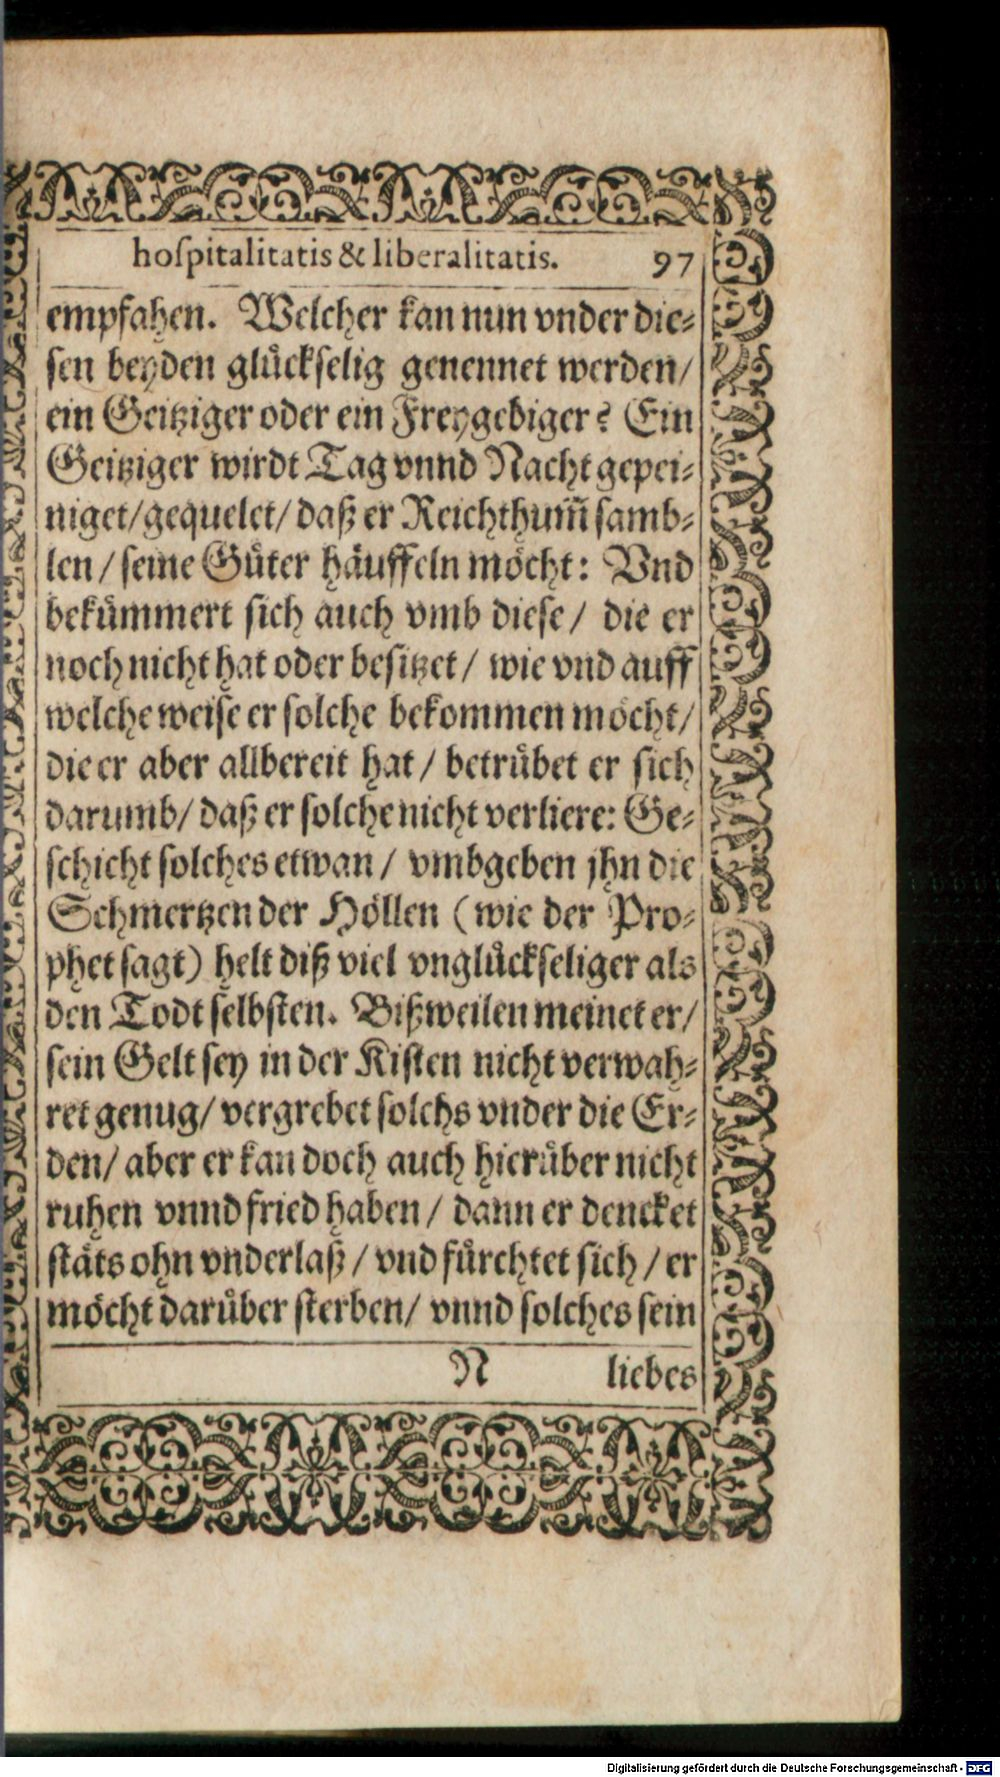 hoſpitalitatis & liberalitatis. 97
empfahen. Welcher kan nun vnder die-
ſen beyden glückſelig genennet werden/
ein Geitziger oder ein Freygebiger? Ein
Geitziger wirdt Tag vnnd Nacht gepei-
niget/gequelet/ daß er Reichthum̃ ſamb-
len / ſeine Güter häuffeln möcht: Vnd
bekümmert ſich auch vmb dieſe / die er
noch nicht hat oder beſitzet / wie vnd auff
welche weiſe er ſolche bekommen möcht/
die er aber allbereit hat / betrübet er ſich
darumb/ daß er ſolche nicht verliere: Ge-
ſchicht ſolches etwan / vmbgeben jhn die
Schmertzen der Höllen (wie der Pro-
phet ſagt) helt diß viel vnglückſeliger als
den Todt ſelbſten. Bißweilen meinet er/
ſein Gelt ſey in der Kiſten nicht verwah-
ret genug/ vergrebet ſolchs vnder die Er-
den/ aber er kan doch auch hierüber nicht
ruhen vnnd fried haben / dann er dencket
ſtäts ohn vnderlaß / vnd fürchtet ſich / er
möcht darüber ſterben/ vnnd ſolches ſein
N liebes
Digitalisierung gefördert durch die Deutsche Forschungsgemeinschaft - DFG